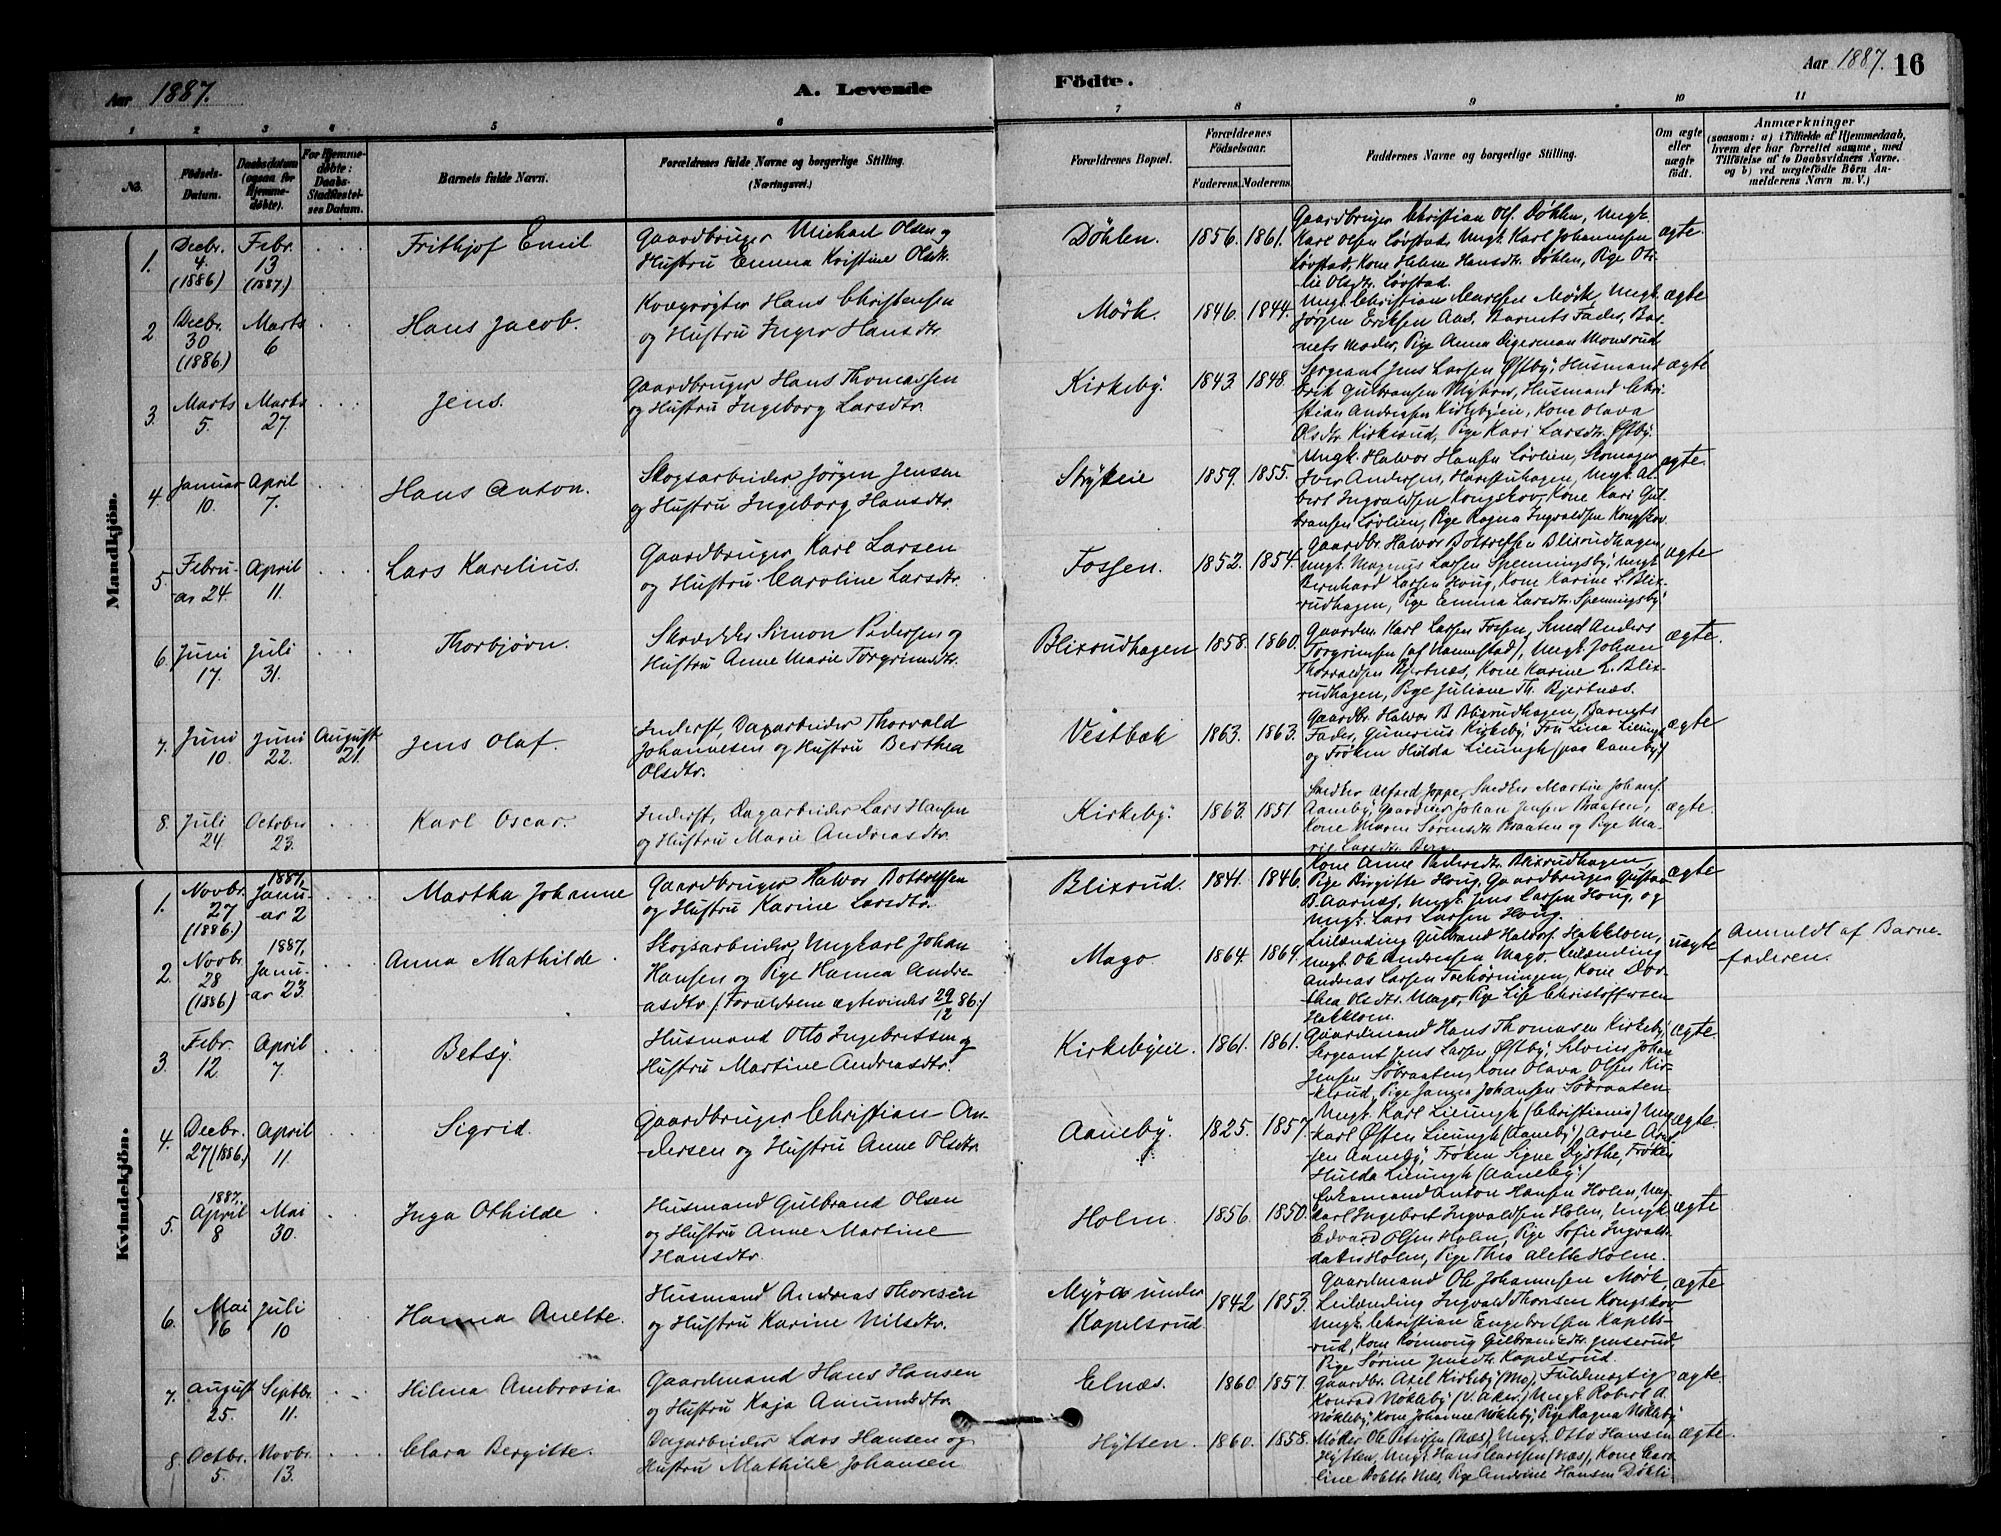 Aar 1887.
A. Levende
Födte.
Aar 1887. 16
1 2 3 4 5 6 7 8 9 10 11
No.
Födsels-Datum.
Daabsdatum (ogsaa for Hjemme-döbte).
For Hjemme-döbte: Daabs-Stadfæstel-ses Datum.
Barnets fulde Navn.
Forældrenes fulde Navne og borgerlige Stilling.
(Næringsvei.)
Forældrenes Bopæl.
Forældrenes Födselsaar.
Faderens. Moderens.
Faddernes Navne og borgerlige Stilling.
Om ægte eller uægte født.
Anmærkninger
(saasom: a) i Tilfælde af Hjemmedaab, hvem der har forrettet samme, med Tilföielse af to Daabsvidners Navne, og b) ved uægtefödte Börn Anmelderens Navn m. V.)
Mandkjön.
1. Decbr. 4. (1886) Febr. 13 (1887) Frithjof Emil
Gaardbruger Michael Olsen og
Hustru Emma Kristine Olsdtr.
Döhlen. 1856. 1861.
Gaardbruger Christian Ols. Døhlen, Ungk.
Karl Olsen Løvstad, Ungk. Karl Johannesen
Løvstad, Kone Helene Hansdtr. Døhlen, Pige Oti-
lie Olsdtr. Løvstad.
ægte
2 Decbr. 30 (1886) Marts 6 Hans Jacob.
Kvægrøgter Hans Christensen
og Hustru Inger Hansdtr.
Mörk. 1846. 1844.
Ungk. Christian Mørk, Ungk.
Jørgen Eriksen Aas, Barnets Fader, Bar-
nets Moder, Pige Anna Digerman Monsrud
ægte
3. Marts 5. Marts 27. Jens.
Gaardbruger Hans Thomassen
og Hustru Ingeborg Larsdtr.
Kirkeby. 1843 1848.
Sergeant Jens Larsen Østby, Husmand
Erik Gulbransen Myhrer, Husmand Chri-
stian Andersen Kirkebyeie, Kone Olava
Olsdtr. Kirkerud, Pige Kari Larsdtr. Østby.
ægte
4. Januar 10. April 7. Hans Anton.
Skogsarbeider Jørgen Jensen
og Hustru Ingeborg Hansdtr.
Strykeie 1859. 1855.
Ungk. Halvor Hansen Løvlien, Skomager
Iver Andersen, Harestuhagen, Ungk. Al-
bert Ingvaldsen Kongskov, Kone Kari Gul-
bransen Løvlien, Pige Ragna Ingvaldsen Kongskov
ægte
5. Febru-ar 24. April 11. Lars Karelius.
Gaardbruger Karl Larsen
og Hustru Caroline Larsdtr.
Fossen. 1852. 1854.
Gaardbr. Halvor Bottolfsen Blixrudhagen,
Ungk. Magnus Larsen Spenningsby, Ungk.
Bernhard Larsen Houg, Kone Karine L. Blix-
rudhagen, Pige Emma Larsdtr. Spenningsby
ægte
6. Juni 17. Juli 31. Thorbjørn.
Skrædder Simon Pedersen og
Hustru Anne Marie Torgrimsdtr.
Blixrudhagen 1858. 1860.
Gaardm. Karl Larsen Fossen, Smed Anders
Torgrimsen (af Nannestad), Ungk. Johan
Thorvaldsen Bjertnæs, Kone Karine L. Blix-
rudhagen, Pige Juliane Th. Bjertnæs.
ægte.
7. Juni 10. Juni 22. August 21. Jens Olaf.
Inderst, Dagarbeider Thorvald
Johannesen og Hustru Berthea
Olsdtr.
Vestbæk 1863. 1863.
Gaardbr. Halvor B. Blixrudhagen, Barnets
Fader, Gunerius Kirkeby, Fru Lina Lieungh
og Frøken Hilda Lieungh (paa Aaneby)
ægte
8. Juli 24. October 23. Karl Oscar.
Inderst, Dagarbeider Lars Hansen
og Hustru Marie Andreasdtr.
Kirkeby. 1863. 1851.
Snedker Alfred Joppe, Snedker Martin Johans.
Aaneby, Johan Jensen Braaten,
Kone Maren Sørensdtr. Braaten og Pige Ma-
rie Larsdtr. Berg.
ægte.
Kvindekjön.
1. Novbr. 27 (1886.) 1887, Janu-ar 2 Martha Johanne
Gaardbruger Halvor Bottolfsen
og Hustru Karine Larsdtr.
Blixrud. 1841. 1846.
Kone Anne Pedersdtr. Blixrudhagen,
Pige Birgitte Houg, Gaardbruger Gustav
B. Aarnæs, Ungk. Jens Larsen Houg, og
Ungk. Lars Larsen Houg.
ægte
2. Novbr. 28 (1886) 1887, Janu-ar 23. Anna Mathilde.
Skogsarbeider, Ungkarl Johan
Hansen og Pige Hanna Andre-
asdtr. (Forældrene ægteviedes 29/12 86.)
Mago 1864. 1864.
Leilænding Gulbrand Halvors. Hakkloen,
Ungk. Ole Andersen Mago, Leilænding
Andreas Larsen, Kone Dor-
thea Olsdtr. Mago, Pige Lise Christoffersen
Hakkloen.
uægte
Anmeldt af Barne-
faderen.
3. Febr. 12. April 7. Betsy.
Husmand Otto Ingebretsen og
Hustru Martine Andreasdtr.
Kirkebyeie. 1861. 1861.
Gaardmand Hans Thomasen Kirkeby,
Sergeant Jens Larsen Østby, Johan
Jensen Søbraaten, Kone Olava Olsen Kir-
kerud, Pige Janna Johansen Søbraaten
ægte.
4. Decbr. 27 (1886) April 11. Sigrid.
Gaardbruger Christian An-
dersen og Hustru Anne Olsdtr.
Aaneby. 1825. 1857.
Ungk. Karl Lieungh (Christiania) Ung-
karl Østen Lieungh (Aaneby), Arne
Aaneby, Frøken Signe Dysthe, Frøken
Hulda Lieungh (Aaneby)
ægte.
5. 1887. April 8 Mai 30. Inga Othilde.
Husmand Gulbrand Olsen
og Hustru Anne Martine
Hansdtr.
Holm. 1856. 1850.
Anton Hansen Holm, Ung-
karl Ingebret Ingvaldsen Holm, Ungk.
Edvard Olsen Holm, Pige Sofie Ingvalds-
datter Holm, Pige Thea Alette Holm.
ægte
6. Mai 16 Juli 10 Hanna Anette.
Husmand Andreas Thoresen
og Hustru Karine Nilsdtr.
Myra under
Kapelsrud 1842 1853.
Gaardmand Ole Johannesen Mørk,
Leilending Ingvald Thoresen Kongskov
Ungk. Christian Engebretsen Kapels-
rud, Kone Rønnoug Gulbrandsdtr. Jenserud,
Pige Sørine Jensdtr. Kapelsrud.
ægte
7. August 25. Septbr. 11. Hilma Ambrosia
Gaardmand Hans Hansen
og Hustru Kaja Amundsdtr.
Elnæs. 1860 1857.
Gaardbr. Axel Kirkeby (Mo), Fuldmægtig
Konrad Nøkleby (V. Aker), Ungk. Robert A.
Nøkleby, Kone Johanne Nøkleby, Pige Ragna Nøkleby
ægte.
8 Octbr. 5. Novbr. 13. Clara Bergitte.
Dagarbeider Lars Hansen og
Hustru Mathilde Johansen
Hytten. 1860. 1858.
Møller Ole Petersen (Næs), Ungk. Otto Hansen
Hytten, Ungk. Hans Larsen (Næs), Kone Caro-
line Næs, Pige Andrine Hansen Døhli
ægte.